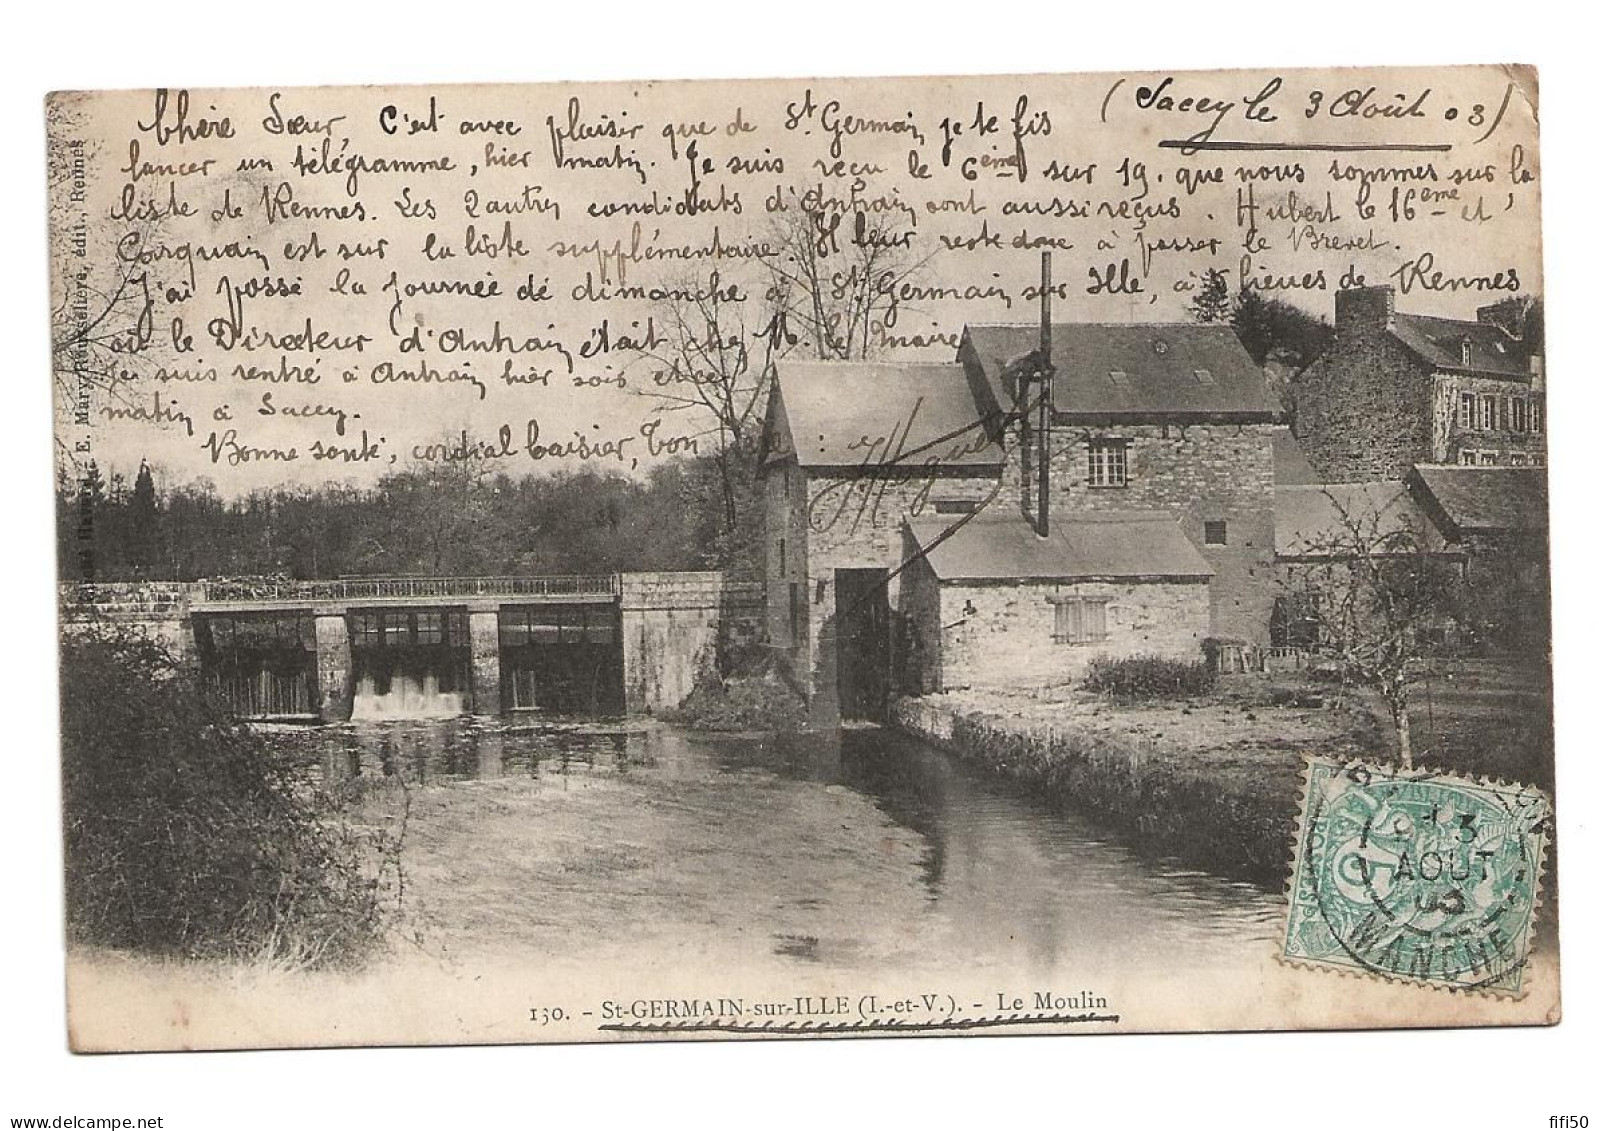 (Sacey le 3 Août 03)
Chère Sœur, C'est avec plaisir que de St Germain je te fis
lancer un télégramme, hier matin. Je suis reçu le 6ème sur 19, que nous sommes sur la
liste de Rennes. Les 2 autres candidats d'Antrain sont aussi reçus. Hubert le 16ème et
Corquain est sur la liste supplémentaire. Il leur reste donc à passer le Brevet.
J'ai passé la journée de dimanche à St Germain sur Ille, à 5 lieues de Rennes
où le Directeur d'Antrain était chez M. le Maire
Je suis rentré à Antrain hier soir et ce
matin à Sacey.
Bonne santé, cordial baisier, Ton
E. Mary-Rousselière, édit., Rennes
130. - St-GERMAIN-sur-ILLE (I.-et-V.). - Le Moulin
POSTES
3
AOUT
03
MANCHE
fifi50
www.delcampe.net